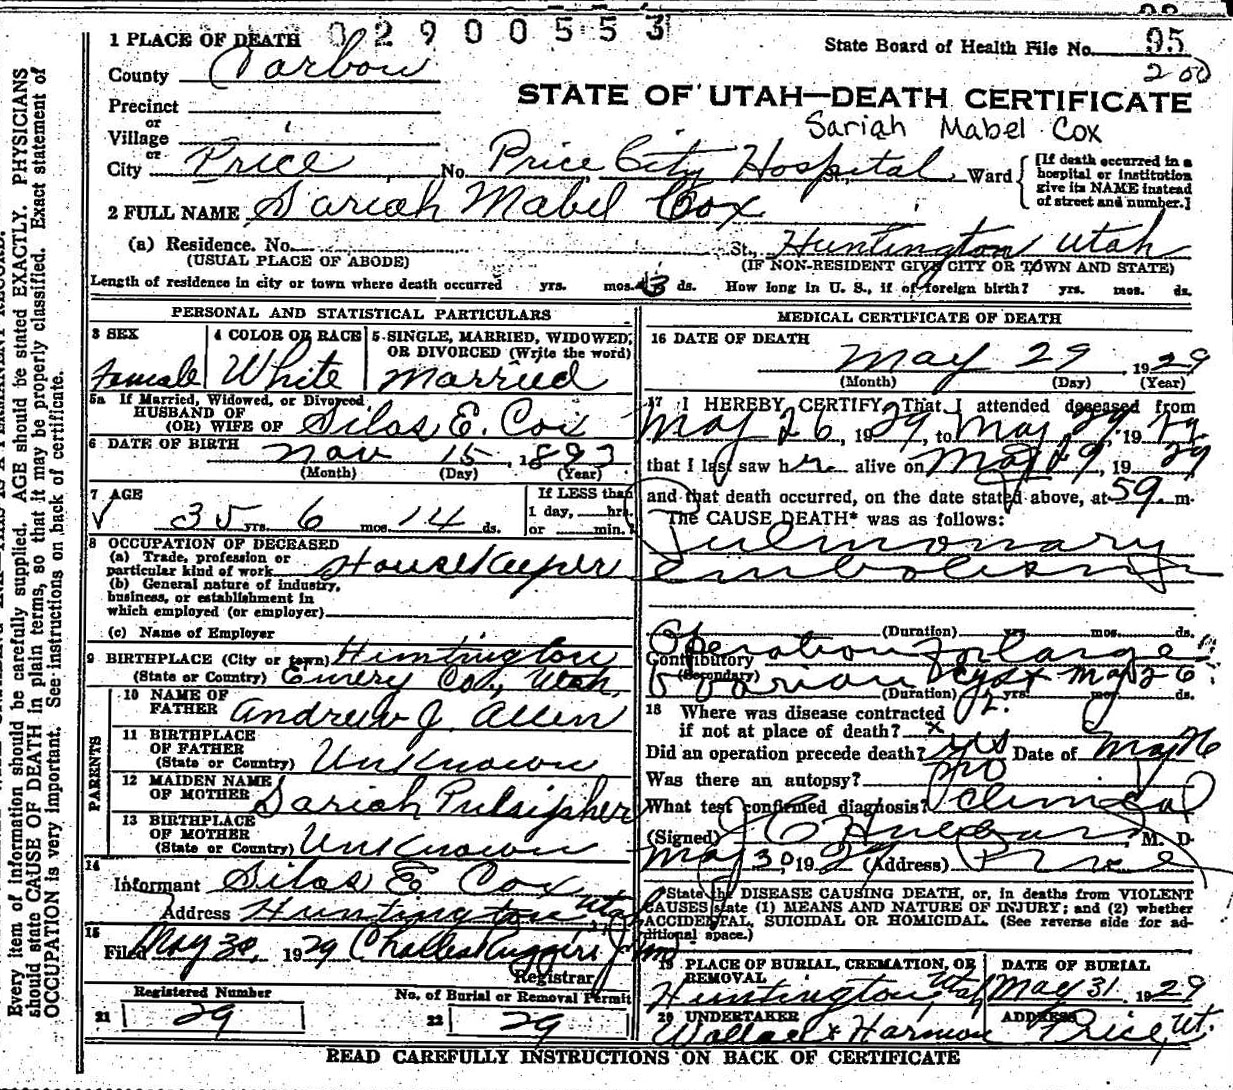 0 2 9 0 0 5 5 3
1 PLACE OF DEATH
State Board of Health File No. 95
200
County Carbon
STATE OF UTAH—DEATH CERTIFICATE
Precinct
or
Village
Sariah Mabel Cox
or
City Price No. Price City Hospital St., Ward
[If death occurred in a
hospital or institution
give its NAME instead
of street and number.]
2 FULL NAME Sariah Mabel Cox
(a) Residence. No. St., Huntington Utah
(USUAL PLACE OF ABODE) (IF NON-RESIDENT GIVE CITY OR TOWN AND STATE)
Length of residence in city or town where death occurred yrs. mos. 3 ds. How long in U. S., if of foreign birth? yrs. mos. ds.
PERSONAL AND STATISTICAL PARTICULARS
3 SEX
Female
4 COLOR OR RACE
White
5 SINGLE, MARRIED, WIDOWED,
OR DIVORCED (Write the word)
Married
5a If Married, Widowed, or Divorced
HUSBAND OF
(OR) WIFE OF Silas E. Cox
6 DATE OF BIRTH Nov 15, 1893
(Month) (Day) (Year)
7 AGE
35 yrs. 6 mos. 14 ds.
If LESS than
1 day, hrs.
or min.
8 OCCUPATION OF DECEASED
(a) Trade, profession or
particular kind of work Housekeeper
(b) General nature of industry,
business, or establishment in
which employed (or employer)
(c) Name of Employer
9 BIRTHPLACE (City or town) Huntington
(State or Country) Emery Co., Utah
PARENTS
10 NAME OF
FATHER Andrew J. Allen
11 BIRTHPLACE
OF FATHER
(State or Country) Unknown
12 MAIDEN NAME
OF MOTHER Sariah Pulsipher
13 BIRTHPLACE
OF MOTHER
(State or Country) Unknown
14
Informant Silas E Cox
Address Huntington Utah
15
Filed May 30, 1929 Charles Ruggeri Jr MD
Registrar
Registered Number
21 29
No. of Burial or Removal Permit
22 29
MEDICAL CERTIFICATE OF DEATH
16 DATE OF DEATH
May 29, 1929
(Month) (Day) (Year)
17 I HEREBY CERTIFY, That I attended deceased from
May 26, 1929, to May 29, 1929.
that I last saw her alive on May 29, 1929
and that death occurred, on the date stated above, at m.
The CAUSE DEATH* was as follows:
Pulmonary
embolism
(Duration) yrs. mos. ds.
Contributory Operation for large
(Secondary) Ovarian cyst May 26.
(Duration) yrs. mos. ds.
18 Where was disease contracted
if not at place of death? x
Did an operation precede death? yes Date of May 26
Was there an autopsy? no
What test confirmed diagnosis? clinical
(Signed) J C Hubbard, M. D.
May 30, 1929 (Address) Price
State the DISEASE CAUSING DEATH, or, in deaths from VIOLENT
CAUSES state (1) MEANS AND NATURE OF INJURY; and (2) whether
ACCIDENTAL, SUICIDAL OR HOMICIDAL. (See reverse side for ad-
ditional space.)
19 PLACE OF BURIAL, CREMATION, OR
REMOVAL
Huntington, Utah
DATE OF BURIAL
May 31, 1929
20 UNDERTAKER
Wallace & Harmon
ADDRESS
Price, Ut.
READ CAREFULLY INSTRUCTIONS ON BACK OF CERTIFICATE
Every item of information should be carefully supplied. AGE should be stated EXACTLY. PHYSICIANS
should state CAUSE OF DEATH in plain terms, so that it may be properly classified. Exact statement of
OCCUPATION is very important. See instructions on back of certificate.